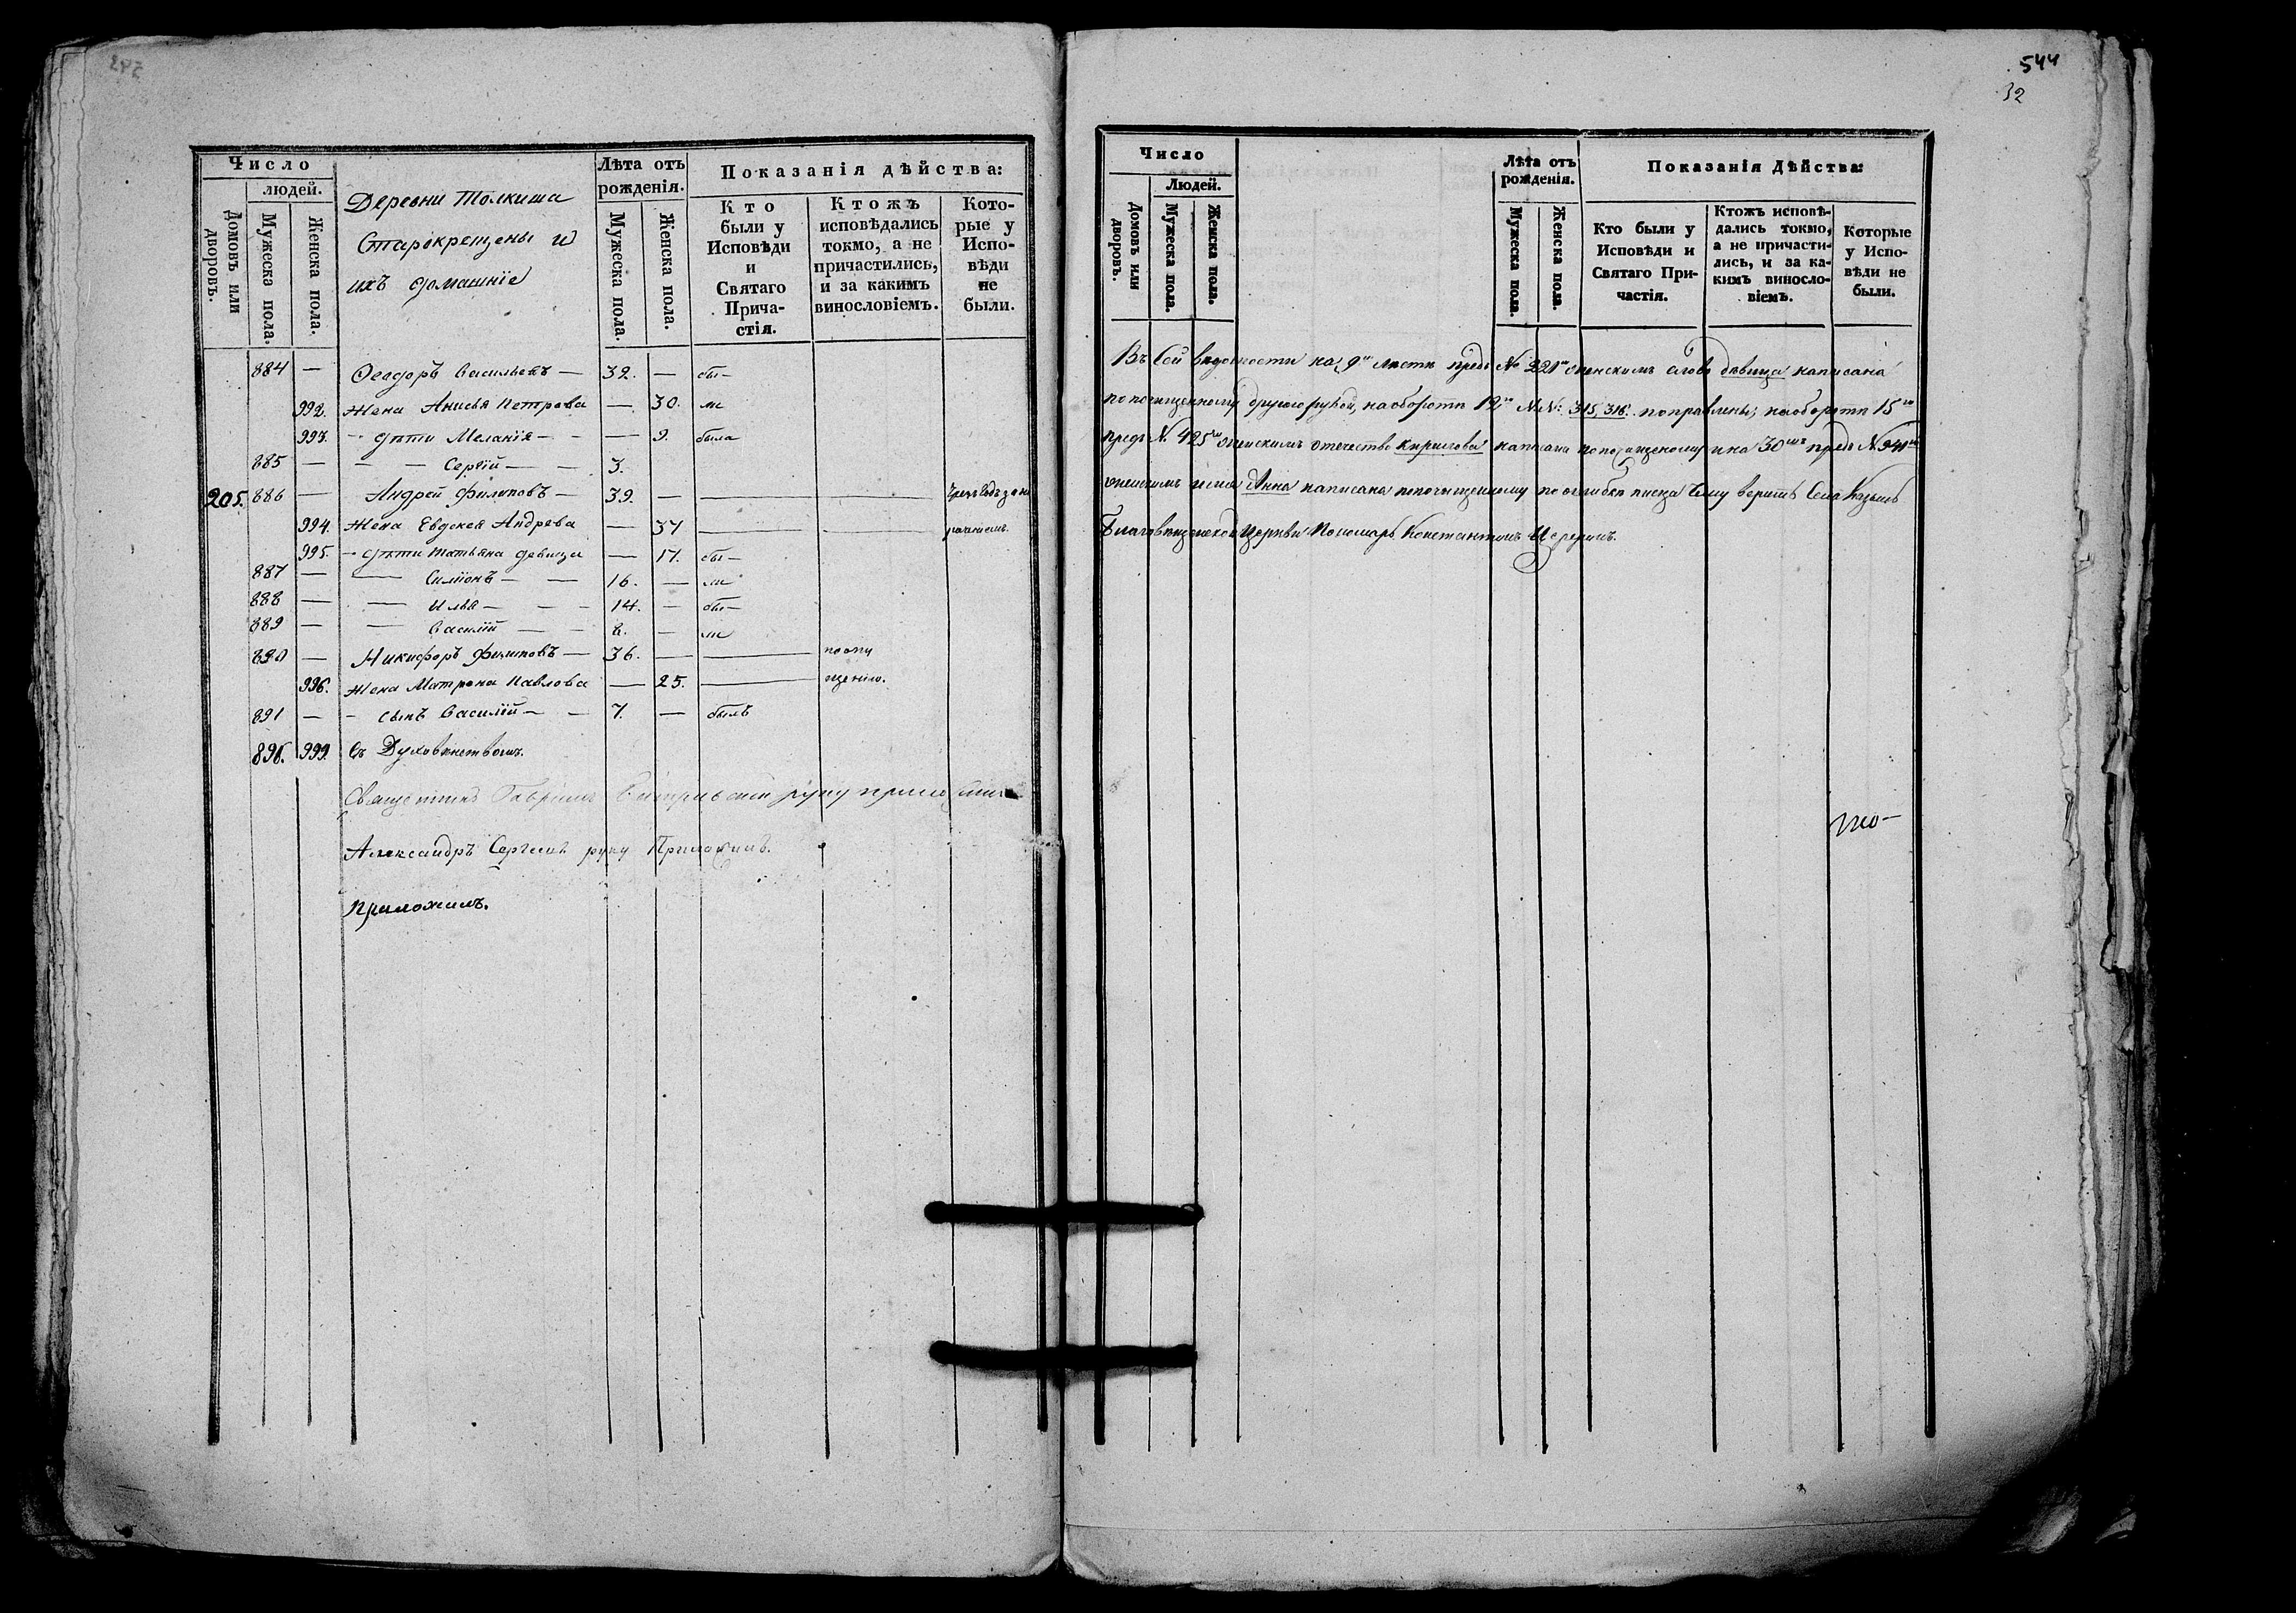 Число
людей.
Домовъ или дворовъ.
Мужеска пола.
Женска пола.
Деревни Толкиша
Старокрещены и
ихъ домашніе
Лѣта отъ рожденія.
Мужеска пола.
Женска пола.
Показанія дѣйства:
Кто были у Исповѣди и Святаго Причастія.
Ктожъ исповѣдались токмо, а не причастились, и за какимъ винословіемъ.
Которые у Исповѣди не были.
884 — Ѳеодоръ Васильевъ — 32. — бы—
992. жена Анисья Петрова — 30. ли
993. – дѣти Меланія — — 9. была
885 — — — Сергій — — 3.
205. 886 — Андрей Филиповъ — 39. —
994. жена Евдокея Андрева — 37
995. – дѣти Татьяна девица — 17. бы—
887 — — Симіонъ — — 16. — ли
888 — — Илья — — – 14. — бы—
889 — — Василій — – 8. — ли
890 — Никифоръ Филиповъ — 36. — — по опу
996. жена Матрона Павлова — 25. — щенію.
891 — – сынъ Василій — – 7. — былъ
896. 999. Съ Духовенствомъ.
Священникъ Гавріилъ руку приложилъ
Александръ Сергеевъ руку Приложилъ.
Приложилъ.
544
32
Число
Людей.
Домовъ или дворовъ.
Мужеска пола.
Женска пола.
Лѣта отъ рожденія.
Мужеска пола.
Женска пола.
Показанія Дѣйства:
Кто были у Исповѣди и Святаго Причастія.
Ктожъ исповѣдались токмо, а не причастились, и за какимъ винословіемъ.
Которые у Исповѣди не были.
Въ сей вѣдомости на 9м листѣ предъ № 221м женскимъ слово дѣвица написана
по почищенному другою рукой, на оборотѣ 12го №№: 315, 316. поправлены, на оборотѣ 15го
предъ № 425м женскимъ отечество Кирилова написана по почищеному и на 30мъ предъ № 941м
женскимъ имя Анна написана по почищенному по ошибкѣ писца Чему веритъ Села
Благовѣщенской Церкви Пономарь Константинъ